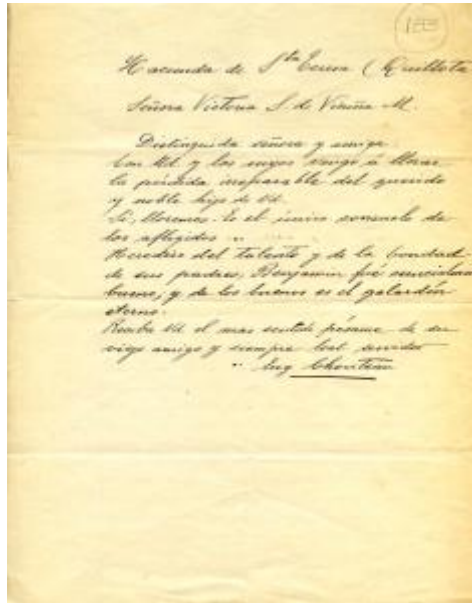 Hacienda de Sta Teresa (Quillota
Señora Victoria S. de Vicuña M.
Distinguida señora y amiga.
Con Ud. y los suyos vengo á llorar
la pérdida irreparable del querido
y noble hijo de Ud.
Sí, lloremos. Es el único consuelo de
los afligidos
Heredero del talento y de la bondad
de sus padres, Benjamin fué
bueno, y de los buenos es el galardón
eterno.
Reciba Ud. el mas sentido pésame de su
viejo amigo y siempre leal servidor
Eug Chouteau